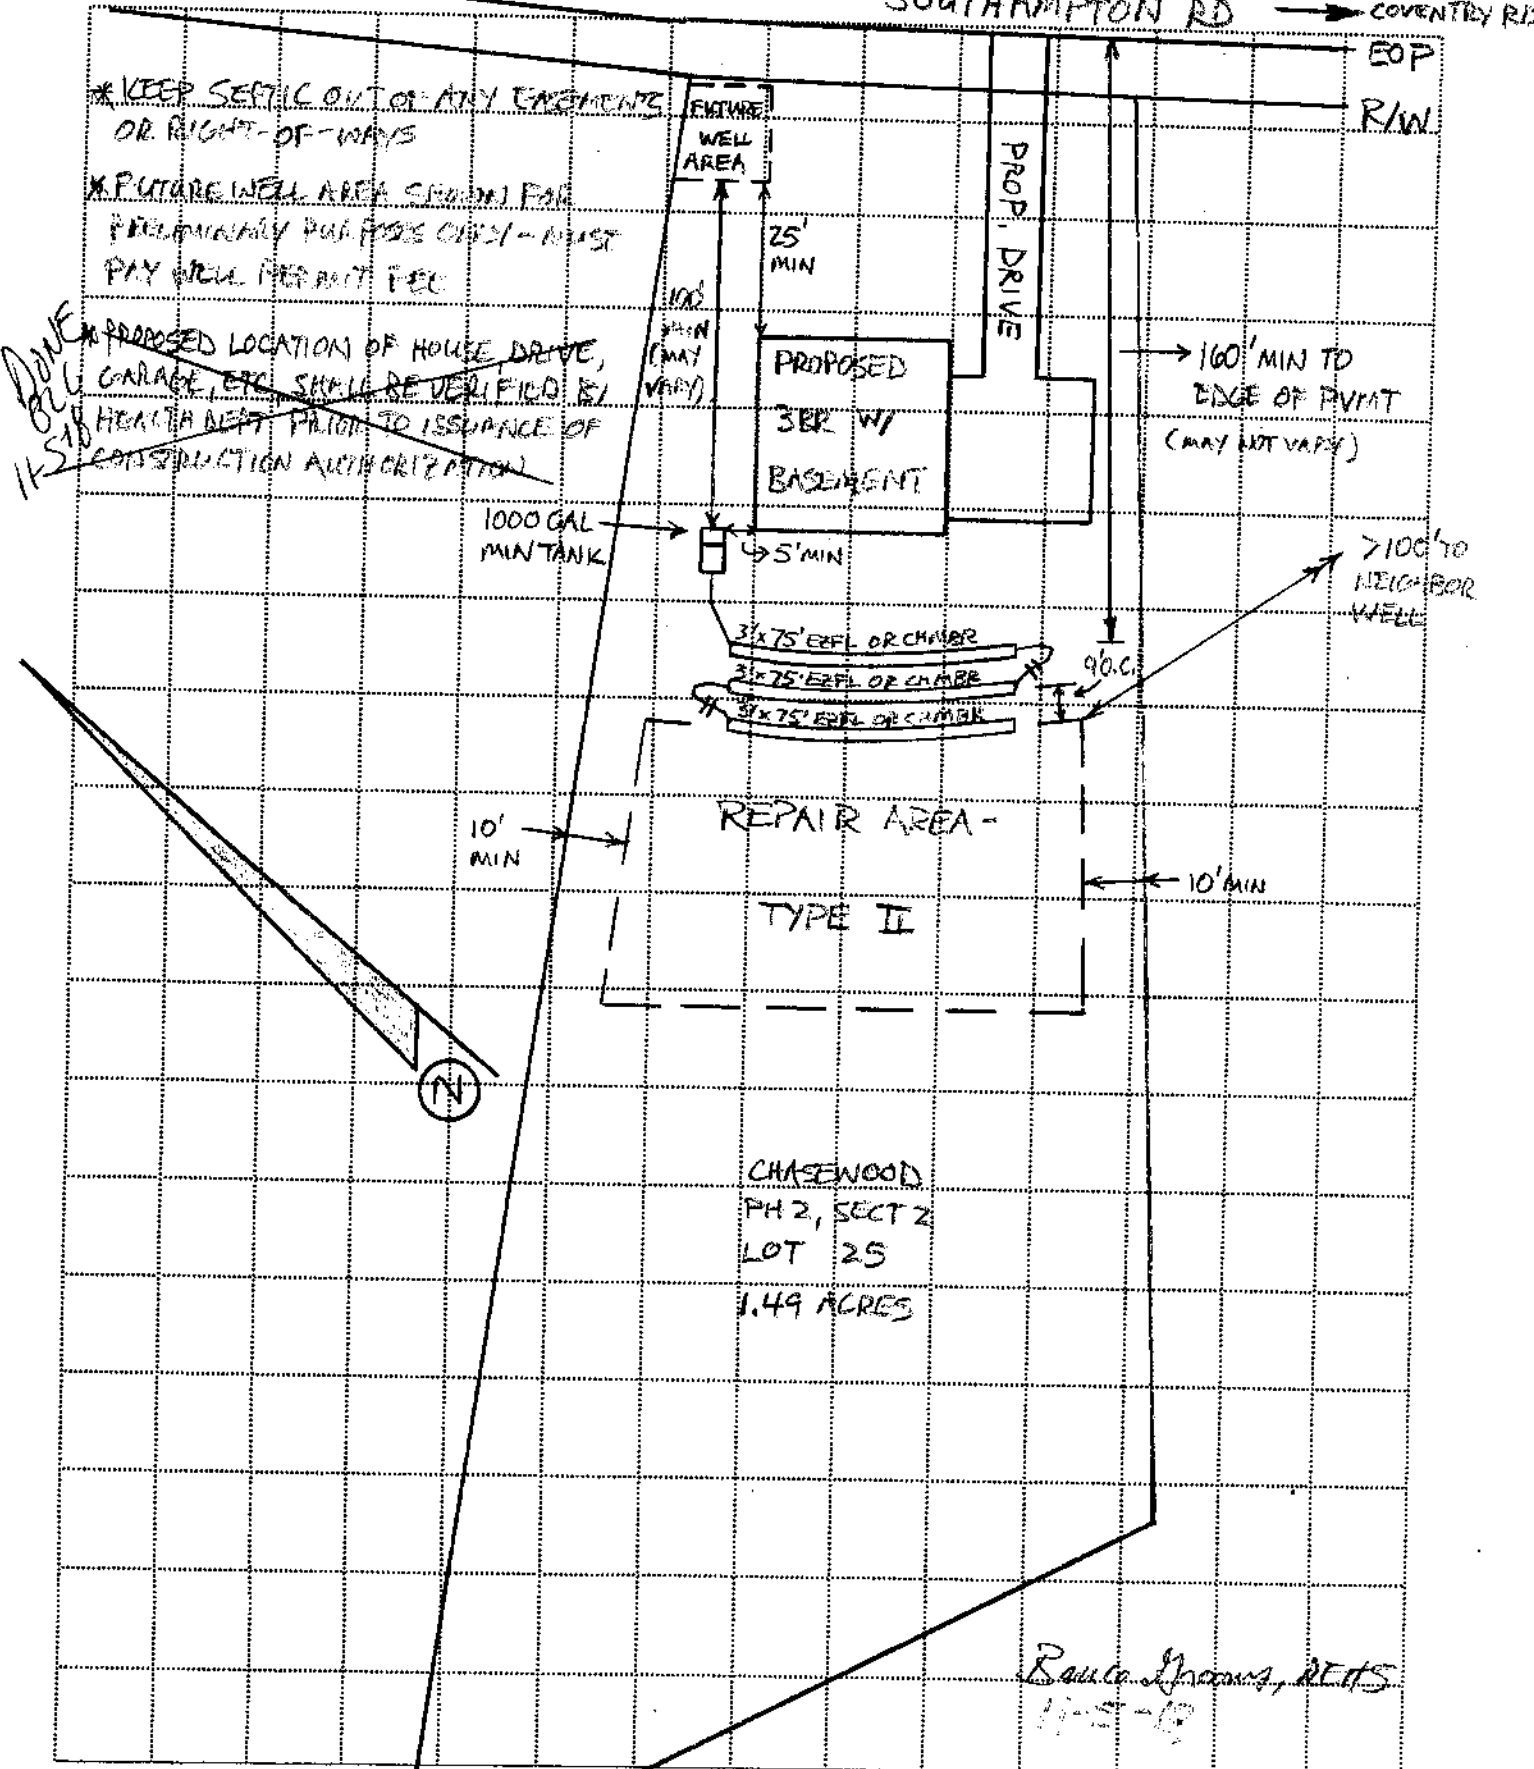 SOUTHAMPTON RD → COVENTRY
EOP
R/W
* KEEP SEPTIC OUT OF ANY EASEMENTS
OR RIGHT-OF-WAYS
* FUTURE WELL AREA SHOWN FOR
PRELIMINARY PURPOSES ONLY - MUST
PAY WELL PERMIT FEE
* PROPOSED LOCATION OF HOUSE, DRIVE,
GARAGE, ETC, SHALL BE VERIFIED BY
HEALTH DEPT PRIOR TO ISSUANCE OF
CONSTRUCTION AUTHORIZATION
DONE
FUTURE
WELL
AREA
PROP. DRIVE
25'
MIN
100'
MIN
(MAY
VARY)
PROPOSED
3BR W/
BASEMENT
160' MIN TO
EDGE OF PVMT
(MAY NOT VARY)
1000 GAL
MIN TANK
5' MIN
>100' TO
NEIGHBOR
WELL
3'x75' EZFL OR CHMBR
3'x75' EZFL OR CHMBR
3'x75' EZFL OR CHMBR
9' O.C.
10'
MIN
REPAIR AREA -
TYPE II
10' MIN
N
CHASEWOOD
PH 2, SECT 2
LOT 25
1.49 ACRES
Grooms, REHS